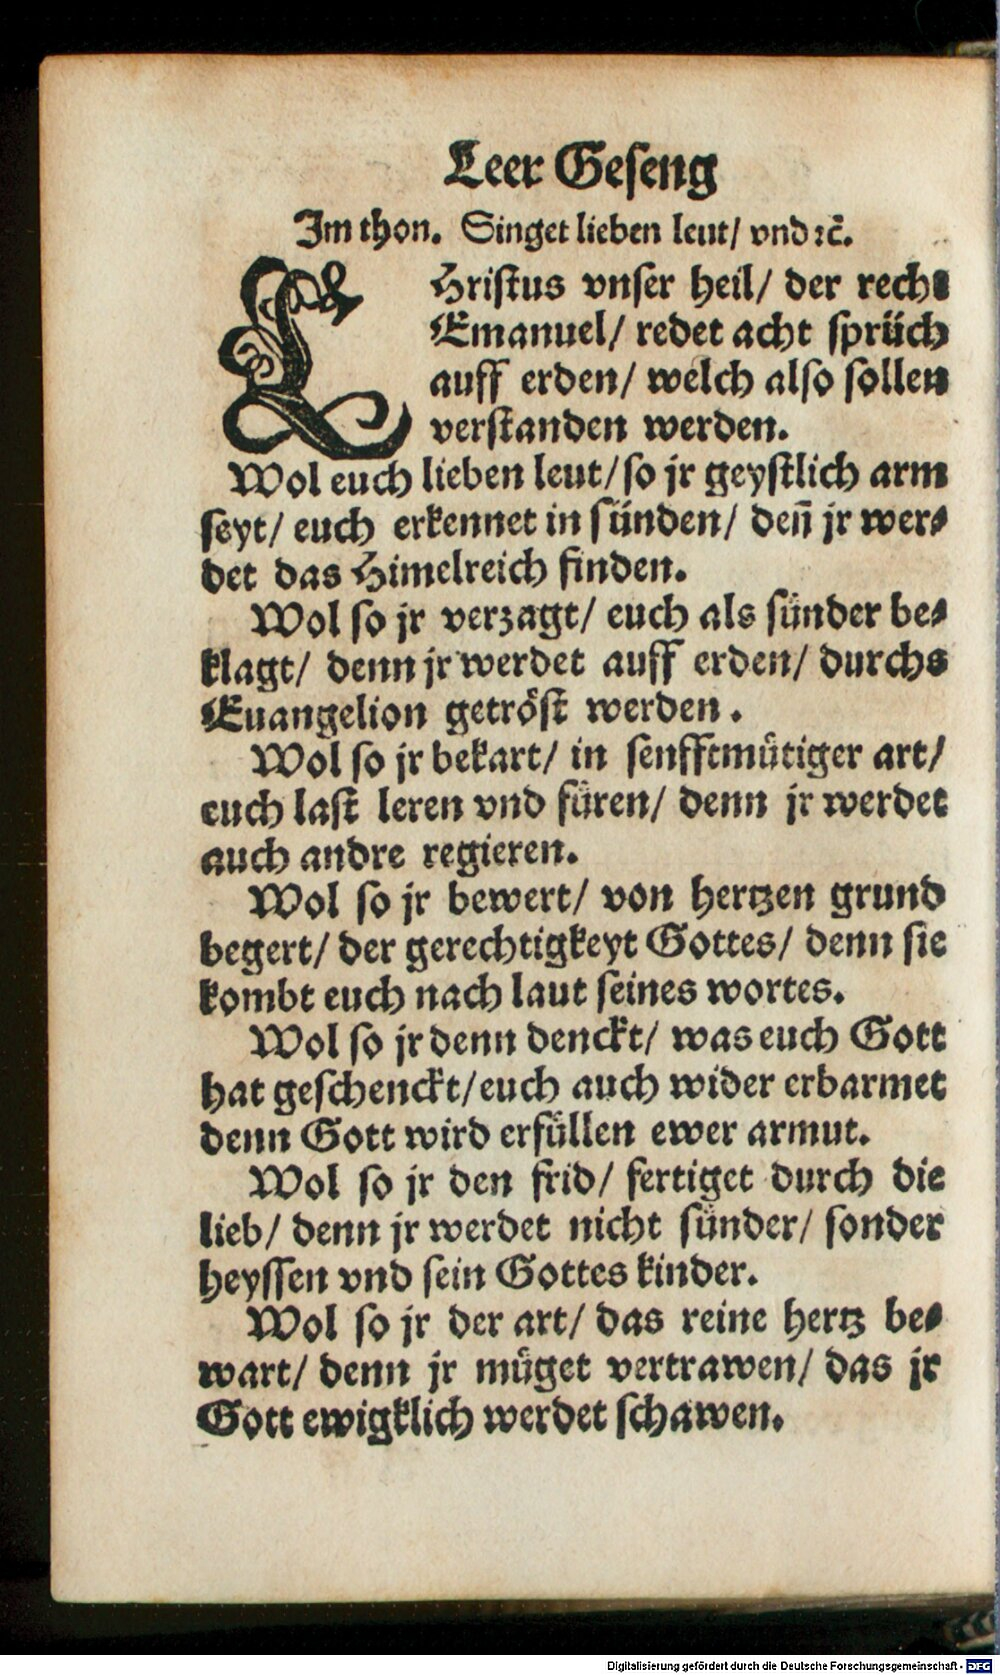 Leer Geseng
Im thon. Singet lieben leut/ vnd ꝛc̄.
CHristus vnser heil/ der recht
Emanuel/ redet acht sprüch
auff erden/ welch also sollen
verstanden werden.
Wol euch lieben leut/ so jr geystlich arm
seyt/ euch erkennet in sünden/ deñ jr wer⸗
det das Himelreich finden.
Wol so jr verzagt/ euch als sünder be⸗
klagt/ denn jr werdet auff erden/ durchs
Euangelion getröst werden.
Wol so jr bekart/ in senfftmütiger art/
euch last leren vnd füren/ denn jr werdet
auch andre regieren.
Wol so jr bewert/ von hertzen grund
begert/ der gerechtigkeyt Gottes/ denn sie
kombt euch nach laut seines wortes.
Wol so jr denn denckt/ was euch Gott
hat geschenckt/ euch auch wider erbarmet
denn Gott wird erfüllen ewer armut.
Wol so jr den frid/ fertiget durch die
lieb/ denn jr werdet nicht sünder/ sonder
heyssen vnd sein Gottes kinder.
Wol so jr der art/ das reine hertz be⸗
wart/ denn jr müget vertrawen/ das jr
Gott ewigklich werdet schawen.
Digitalisierung gefördert durch die Deutsche Forschungsgemeinschaft - DFG